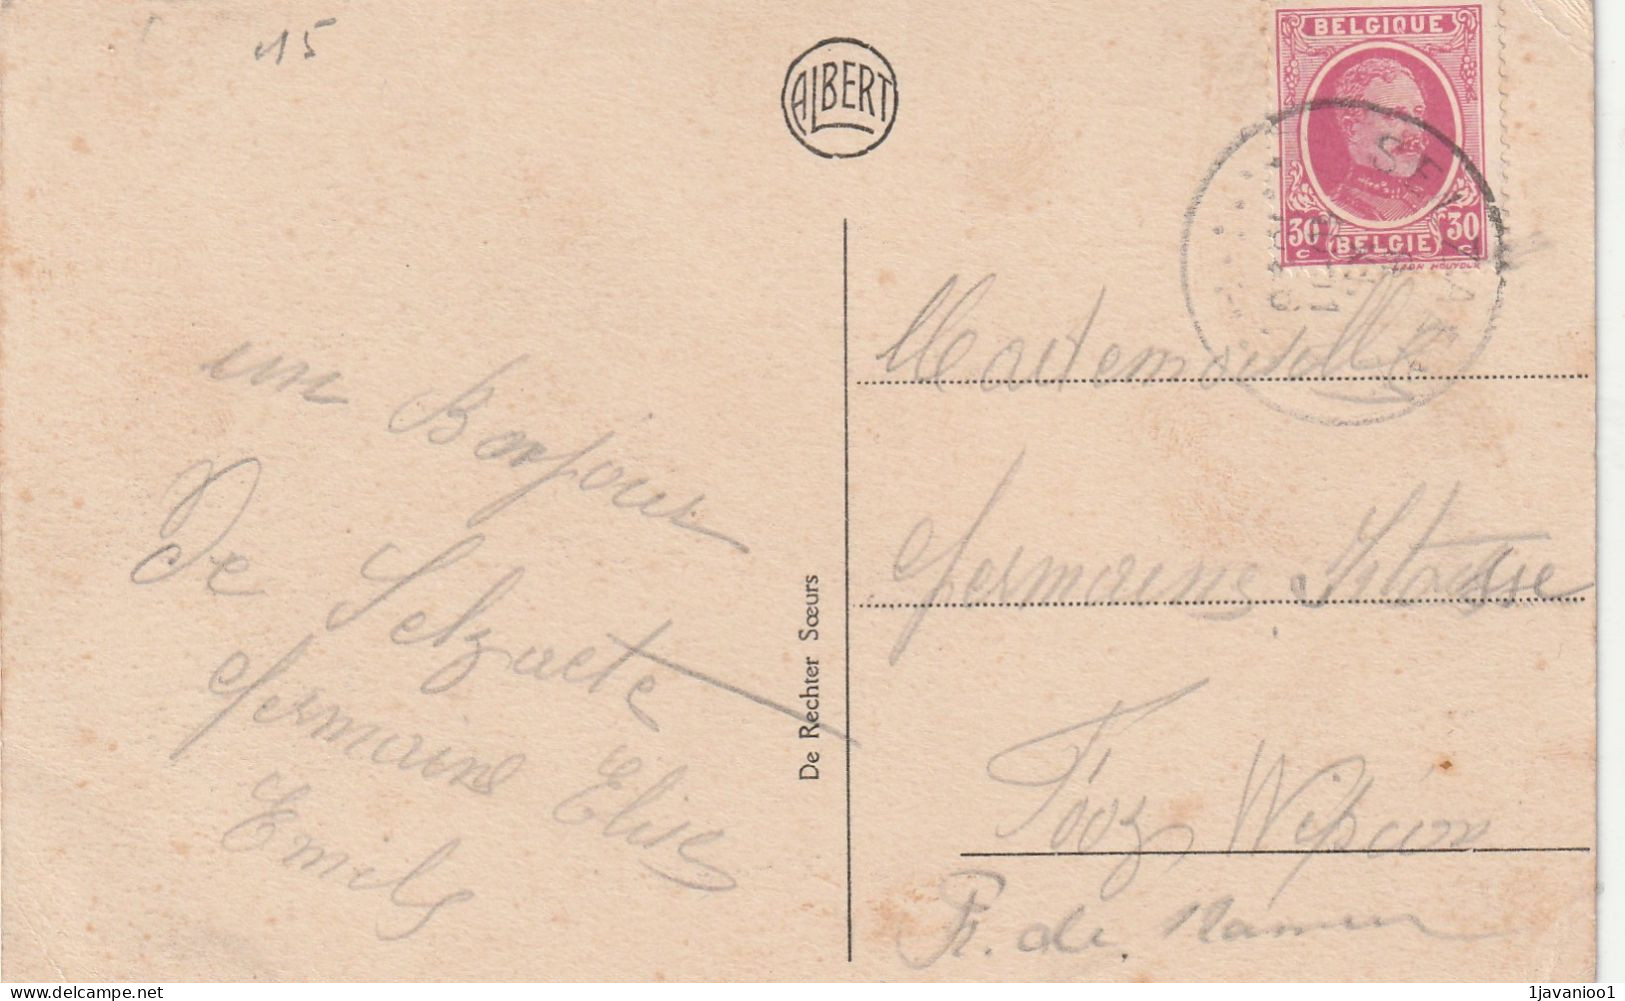 15
ALBERT
BELGIQUE
30 30
C C
BELGIE
un Bonjour
de Selzaete
Germaine Elise
Emile
De Rechter Sœurs
Mademoiselle
Germaine
Fooz Wépion
Pr. de Namur
www.delcampe.net
1javanioo1